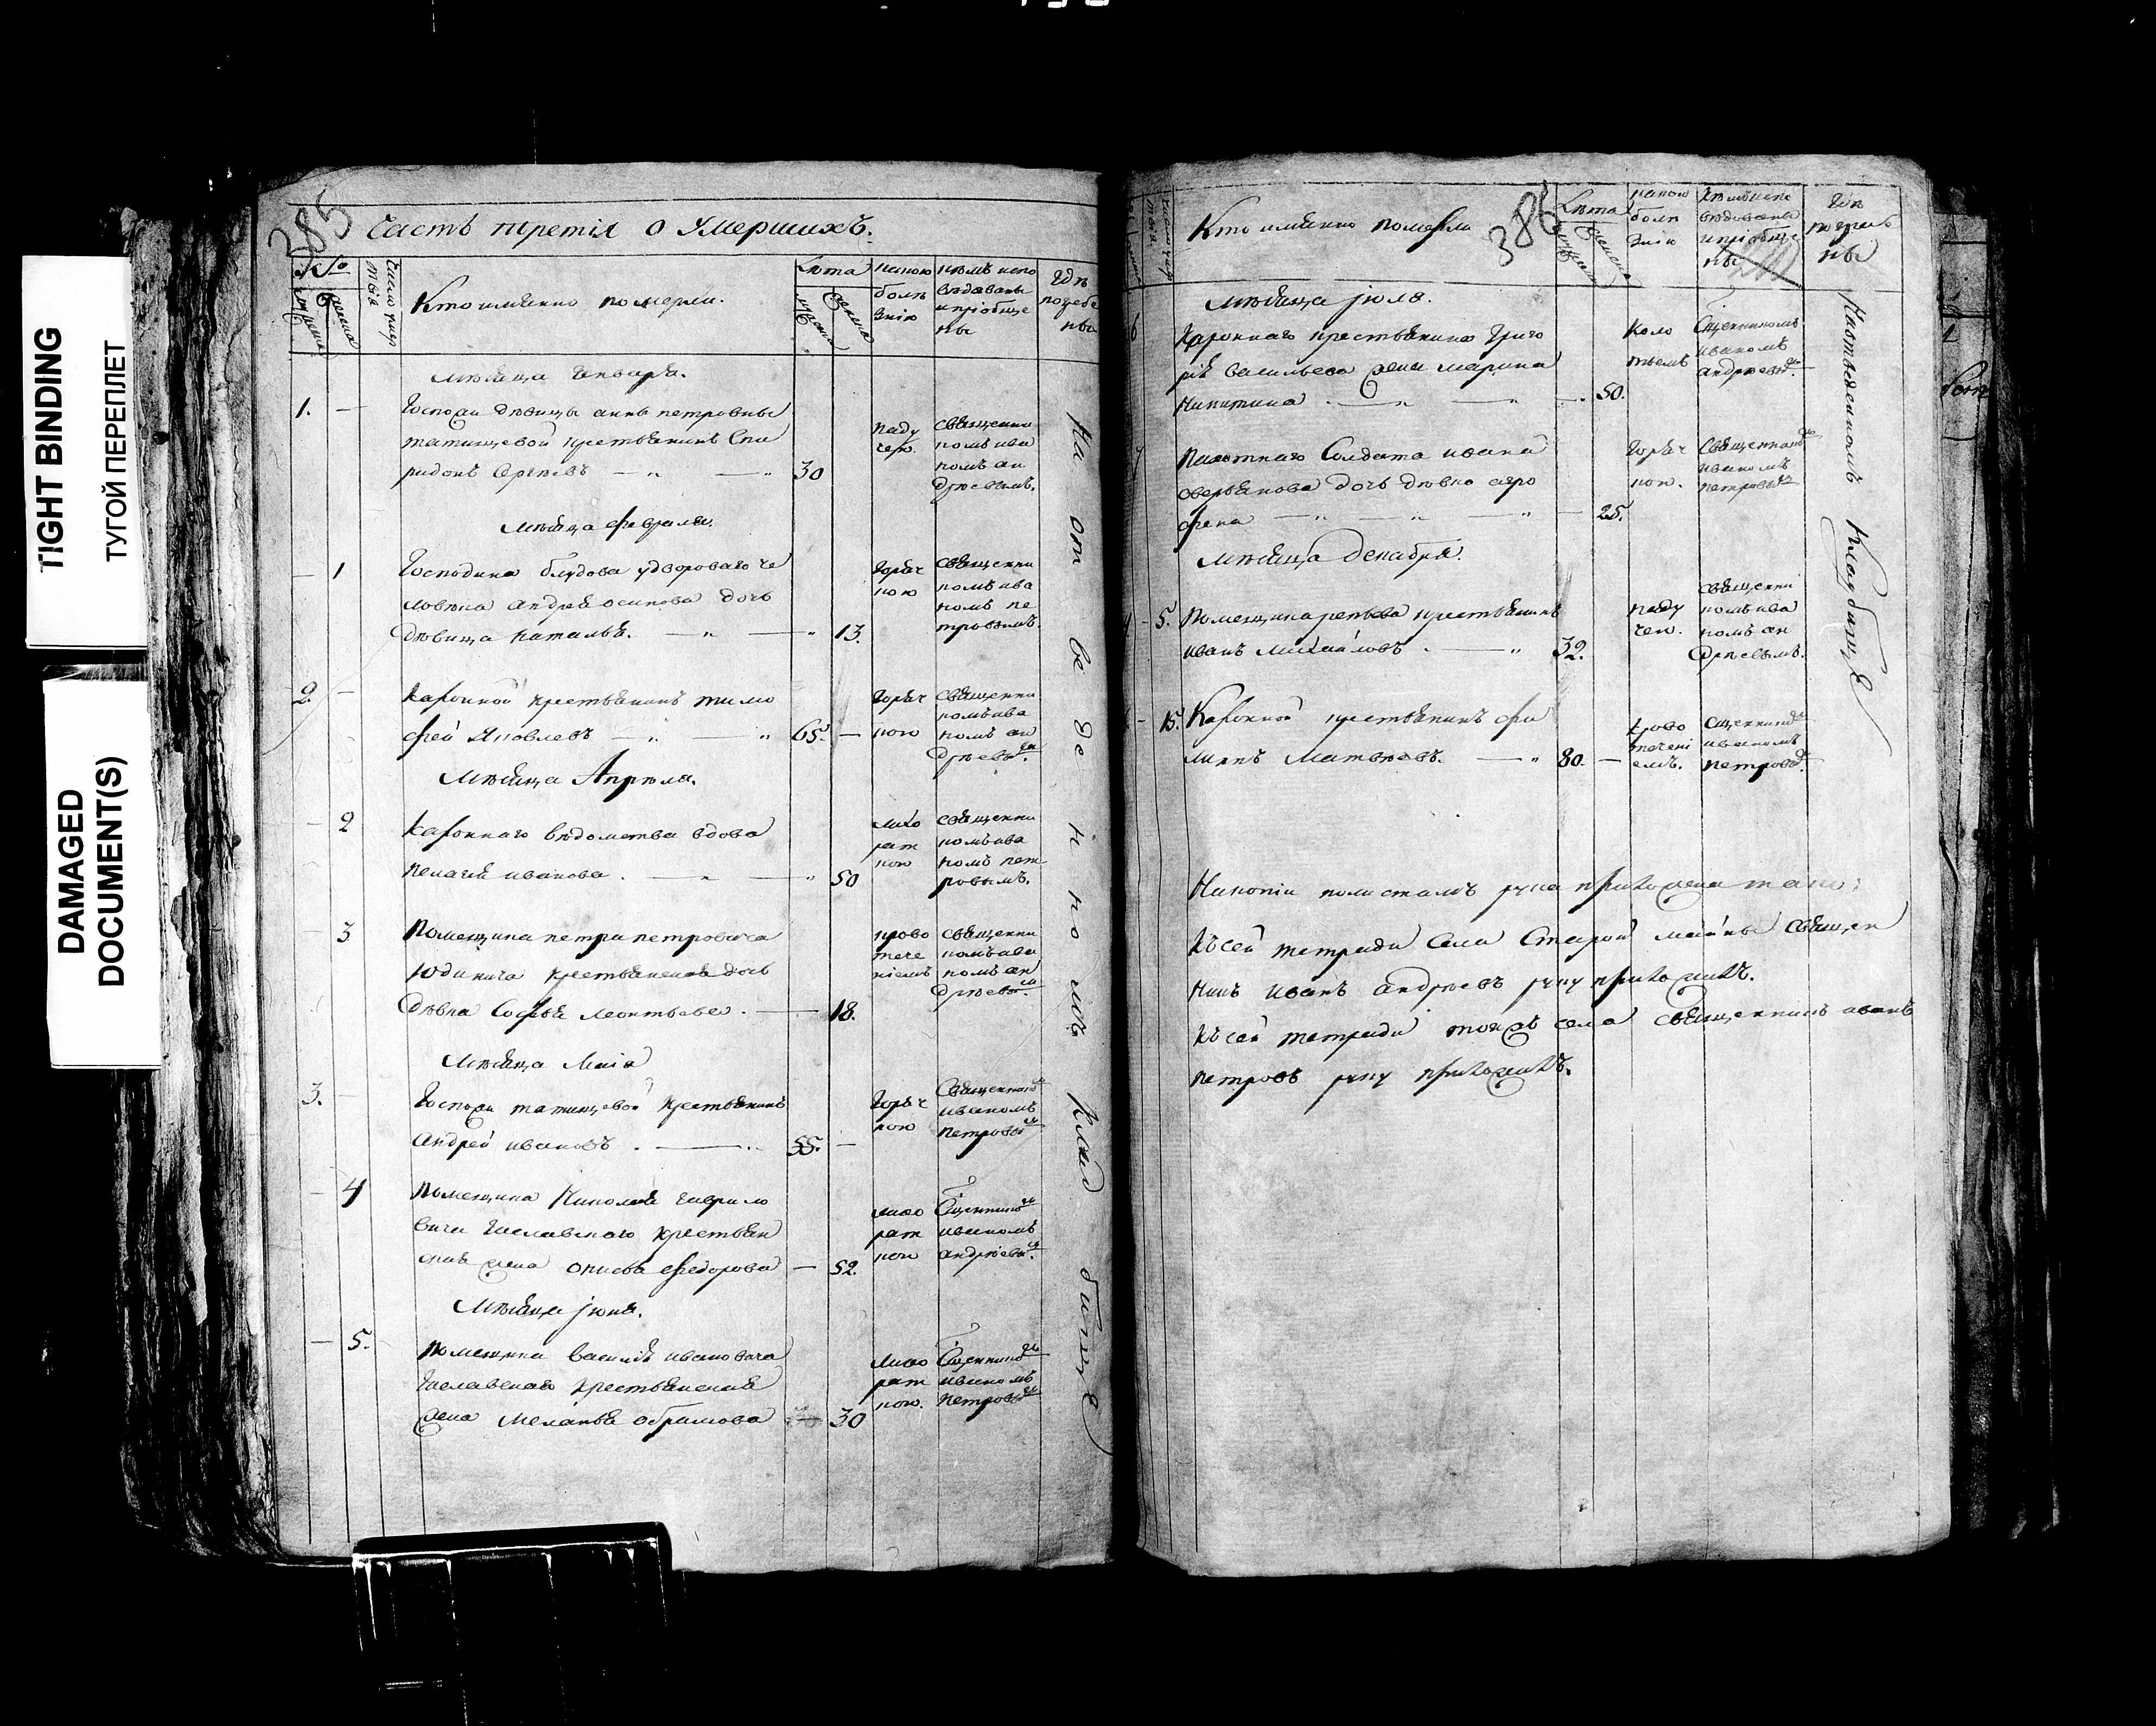 TIGHT BINDING
ТУГОЙ ПЕРЕПЛЕТ
DAMAGED
DOCUMENT(S)
385
Часть третія о Умершихъ.
№
Число мерт
выя
Кто имянно померли.
Лѣта
какою
болѣ
знію
кѣмъ испо
вѣдованы
и пріобще
ны
Гдѣ
погребе
ны
Мѣсяца Генваря.
1.
Госпожи дѣвицы анны петровны
татищевой крестьянинъ Спи
ридонъ Сергѣевъ
30
паду
чею
священни
комъ ива
номъ ан
дрѣевымъ.
Мѣсяца февраля.
1
Господина блудова удвороваго че
ловѣка андрея осипова дочь
дѣвица наталья.
13.
горяч
кою
священни
комъ ива
номъ пе
тровымъ.
2.
Казенной крестьянинъ тимо
фей Яковлевъ
65.
горяч
кою
священни
комъ ива
номъ ан
дрѣевы.
Мѣсяца Апрѣля.
2
Казеннаго вѣдомства вдова
пелагея иванова.
50
лихо
рат
кою
священни
комъ ива
номъ пет
ровымъ.
3
Помещика петра петровича
Юдинича крестьянская дочь
дѣвка Софья леонтьева.
18.
крово
тече
ніемъ
священни
комъ ива
номъ ан
дрѣевы.
Мѣсяца Маія
3.
Госпожи татищевой крестьянинъ
андрей ивановъ.
55.
горяч
кою
Священником
иваномъ
петровы
4
Помещика Николая гаврило
вича крестьян
ская жена Федорова
52.
лихо
рат
кою
Сщенником
иваномъ
андрѣевы.
Мѣсяца іюня.
5.
Помещика василья ивановича
крестьянская
жена меланья обрамова
30
лихо
рат
кою.
Сщенником
иваномъ
петровы
на от ве де н но мъ клад бищѣ
386
Кто имянно померли
Лѣта
какою
болѣ
знію
кѣмъ испо
вѣдованы
и пріобще
ны
Гдѣ
погребе
ны
Мѣсяца іюля.
6
Казеннаго крестьянина Григо
рья васильева жена марина
Никитина
50.
коло
тьемъ
Сщенникомъ
иваномъ
андрѣевы.
7
Пахотнаго Солдата ивана
аверьянова дочь дѣвка агро
фена
25.
горяч
кою.
Священником
иваномъ
петровы
Мѣсяца декабря.
5.
Помещика крестьянинъ
иванъ михайловъ.
32.
паду
чею.
священни
комъ ива
номъ ан
дрѣевымъ.
15.
Казенной крестьянинъ фи
липъ матвѣевъ.
80.
крово
течені
емъ.
Сщенником
иваномъ
петровы.
На отведенномъ Кладбищѣ
Къ сей тетради Села Старой майны Священ
никъ иванъ андрѣевъ руку приложилъ.
Къ сей тетради тогожъ села священникъ иванъ
петровъ руку приложилъ.